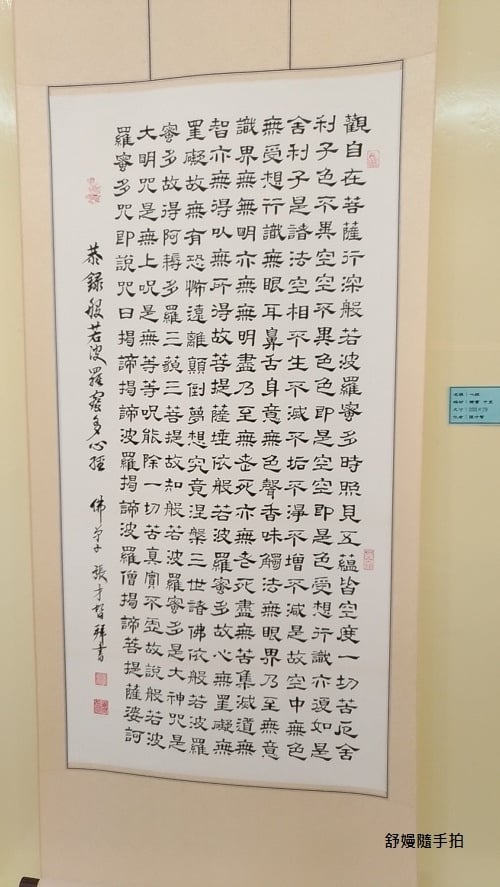 觀自在菩薩行深般若波羅蜜多時照見五蘊皆空度一切苦厄舍
利子色不異空空不異色色即是空空即是色受想行識亦復如是
舍利子是諸法空相不生不滅不垢不淨不增不減是故空中無色
無受想行識無眼耳鼻舌身意無色聲香味觸法無眼界乃至無意
識界無無明亦無無明盡乃至無老死亦無老死盡無苦集滅道無
智亦無得以無所得故菩提薩埵依般若波羅蜜多故心無罣礙無
罣礙故無有恐怖遠離顛倒夢想究竟涅槃三世諸佛依般若波羅
蜜多故得阿耨多羅三藐三菩提故知般若波羅蜜多是大神咒是
大明咒是無上呪是無等等呪能除一切苦真實不虛故說般若波
羅蜜多咒即說咒曰揭諦揭諦波羅揭諦波羅僧揭諦菩提薩婆訶
恭錄般若波羅蜜多心經 佛弟子 張才智拜書
舒嫚隨手拍